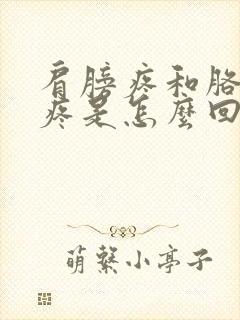 肩膀疼和胳
疼是怎麼回
萌繫小亭子